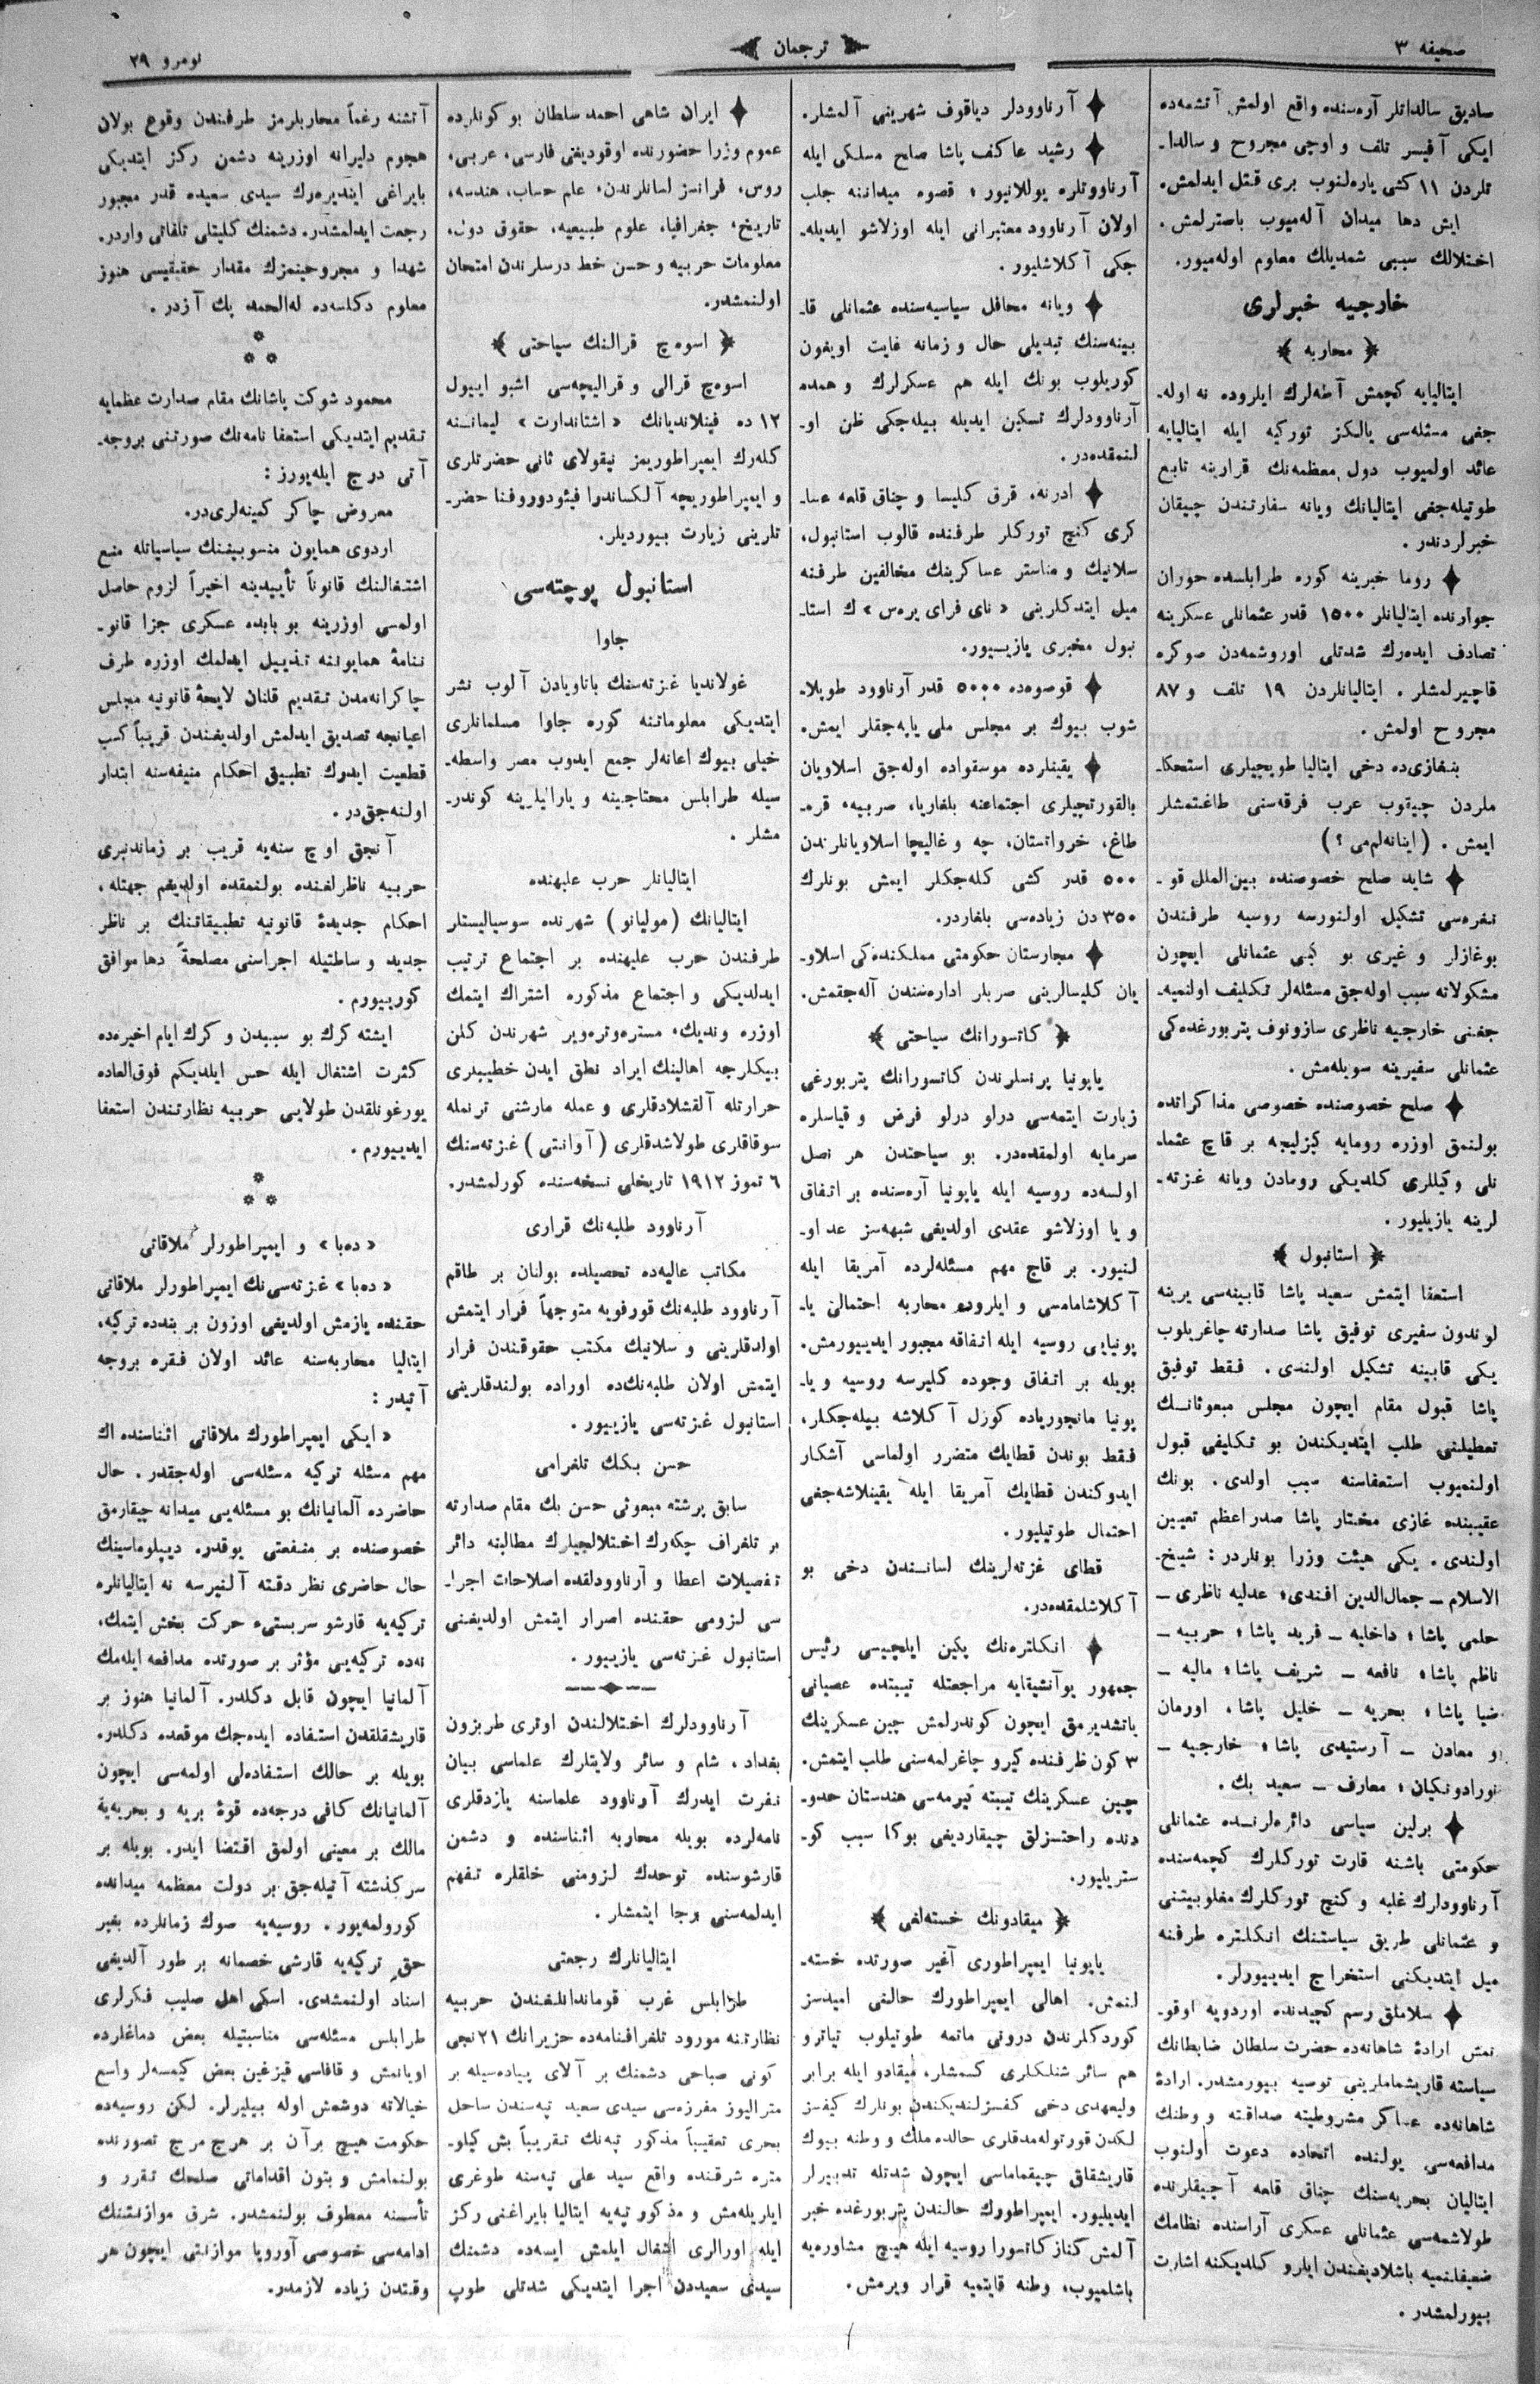 صحیفه ٣
ترجمان
نومرو ٢٩
سادیق سالداتلر آره‌سنده واقع اولمش آتشمه‌ده
ایکی آفیسر تلف و اوچی مجروح و سالدا-
تلردن ١١ کشی یاره‌لنوب بری قتل ایدلمش.
ایش دها میدان آله‌میوب باصترلمش.
اختلالك سببی شمدیلك معلوم اوله‌میور.
خارجیه خبرلری
محاربه
ایتالیایه کچمش آطه‌لرك ایلروده نه اوله-
جغی مسئله‌سی یالکز تورکیه ایله ایتالیایه
عائد اولمیوب دول معظمه‌نك قرارینه تابع
طوتیله‌جغی ایتالیانك ویانه سفارتندن چیقان
خبرلردندر.
روما خبرینه کوره طرابلسده حوران
جوارنده ایتالیانلر ١٥٠٠ قدر عثمانلی عسکرینه
تصادف ایده‌رك شدتلی اوروشمه‌دن صوکره
قاچیرلمشلر. ایتالیانلردن ١٩ تلف و ٨٧
مجروح اولمش.
بنغازی‌ده دخی ایتالیا طوپچیلری استحکا-
ملردن چیقوب عرب فرقه‌سنی طاغتمشلر
ایمش. (اینانه‌لم‌می؟)
شاید صلح خصوصنده بین‌الملل قو-
نفره‌سی تشکیل اولنورسه روسیه طرفندن
بوغازلر و غیری بو کبی عثمانلی ایچون
مشکولاته سبب اوله‌جق مسئله‌لر تکلیف اولنمیه-
جغنی خارجیه ناظری سازونوف پتربورغده‌کی
عثمانلی سفیرینه سویله‌مش.
صلح خصوصنده خصوصی مذاکراتده
بولنمق اوزره رومایه کیزلیجه بر قاچ عثما-
نلی وکیللری کلدیکی رومادن ویانه غزته-
لرینه یازیلیور.
استانبول
استعفا ایتمش سعید پاشا قابینه‌سی یرینه
لوندون سفیری توفیق پاشا صدارته چاغریلوب
یکی قابینه تشکیل اولندی. فقط توفیق
پاشا قبول مقام ایچون مجلس مبعوثانك
تعطیلنی طلب ایتدیکندن بو تکلیفی قبول
اولنمیوب استعفاسنه سبب اولدی. بونك
عقیبنده غازی مختار پاشا صدر اعظم تعیین
اولندی. یکی هیئت وزرا بونلردر: شیخ-
الاسلام — جمال‌الدین افندی؛ عدلیه ناظری —
حلمی پاشا؛ داخلیه — فرید پاشا؛ حربیه —
ناظم پاشا؛ نافعه — شریف پاشا؛ مالیه —
ضیا پاشا؛ بحریه — خلیل پاشا، اورمان
و معادن — آرستیدی پاشا؛ خارجیه —
نورادونکیان؛ معارف — سعید بك.
برلین سیاسی دائره‌لرنده عثمانلی
حکومتی باشنه قارت تورکلرك کچمه‌سنده
آرناوودلرك غلبه و کنچ تورکلرك مغلوبیتنی
و عثمانلی طریق سیاستنك انکلتره طرفنه
میل ایتدیکنی استخراج ایدییورلر.
سلاملق رسم کچیدنده اوردویه اوقو-
نمش ارادهٔ شاهانه‌ده حضرت سلطان ضابطانك
سیاسته قاریشماملرینی توصیه بیورمشدر. ارادهٔ
شاهانه‌ده عساکر مشروطیته صداقته و وطنك
مدافعه‌سی یولنده اتحاده دعوت اولنوب
ایتالیان بحریه‌سنك چناق قلعه آچیقلرنده
طولاشمه‌سی عثمانلی عسکری آراسنده نظامك
ضعیفلنمیه باشلادیغندن ایلرو کلدیکنه اشارت
بیورلمشدر.
آرناوودلر دیاقوف شهرینی آلمشلر.
رشید عاکف پاشا صلح مسلکی ایله
آرناووتلره یوللانیور؛ قصوه میداننه جلب
اولان آرناوود معتبرانی ایله اوزلاشو ایدیله-
جکی آکلاشلیور.
ویانه محافل سیاسیه‌سنده عثمانلی قا-
بینه‌سنك تبدیلی حال و زمانه غایت اویغون
کوریلوب بونك ایله هم عسکرلرك و همده
آرناوودلرك تسکین ایدیله بیله‌جکی ظن او-
لنمقده‌در.
ادرنه، قرق کلیسا و چناق قلعه عسا-
کری کنچ تورکلر طرفنده قالوب استانبول،
سلانیك و مناستر عساکرینك مخالفین طرفنه
میل ایتدکلرینی «نای فرای پره‌س» ك استا-
نبول مخبری یازییور.
قوصوه‌ده ٥٠٠٠ قدر آرناوود طوپلا-
شوب بیوك بر مجلس ملی یاپه‌جقلر ایمش.
یقینلرده موسقواده اوله‌جق اسلاویان
بالقورتچیلری اجتماعنه بلغاریا، صربیه، قره-
طاغ، خرواتستان، چه و غالیچیا اسلاویانلرندن
٥٠٠ قدر کشی کله‌جکلر ایمش بونلرك
٣٥٠ دن زیاده‌سی بلغاردر.
مجارستان حکومتی مملکتنده‌کی اسلاو-
یان کلیسالرینی صربلر اداره‌سندن آله‌جقمش.
کاتسورانك سیاحتی
یاپونیا پرنسلرندن کاتسورانك پتربورغی
زیارت ایتمه‌سی درلو درلو فرض و قیاسلره
سرمایه اولمقده‌در. بو سیاحتدن هر نصل
اولسه‌ده روسیه ایله یاپونیا آره‌سنده بر اتفاق
و یا اوزلاشو عقدی اولدیغی شبهه‌سز عد او-
لنیور. بر قاچ مهم مسئله‌لرده آمریقا ایله
آکلاشامامسی و ایلروده محاربه احتمالی یا-
پونیایی روسیه ایله اتفاقه مجبور ایدییورمش.
بویله بر اتفاق وجوده کلیرسه روسیه و یا-
پونیا مانچوریاده کوزل آکلاشه بیله‌جکلر،
فقط بوندن قطایك متضرر اولماسی آشکار
ایدوکندن قطایك آمریقا ایله یقینلاشه‌جغی
احتمال طوتیلیور.
قطای غزته‌لرینك لسانندن دخی بو
آکلاشلمقده‌در.
انکلتره‌نك پکین ایلچیسی رئیس
جمهور یوآنشیقایه مراجعتله تیبتده عصیانی
یاتشدیرمق ایچون کوندرلمش چین عسکرینك
٣ کون ظرفنده کیرو چاغرلمه‌سنی طلب ایتمش.
چین عسکرینك تیبته کیرمه‌سی هندستان حدو-
دنده راحتسزلق چیقاردیغی بوکا سبب کو-
ستریلیور.
میقادونك خسته‌لغی
یاپونیا ایمپراطوری آغیر صورتده خسته-
لنمش. اهالی ایمپراطورك حالنی امیدسز
کوردکلرندن درونی ماتمه طوتیلوب تیاترو
هم سائر شنلکلری کسمشلر، میقادو ایله برابر
ولیعهدی دخی کفسزلندیکندن بونلرك کیفسز
لکدن قورتوله‌مدقلری حالده ملك و وطنه بیوك
قاریشقلق چیقماماسی ایچون شدتله تدبیرلر
ایدیلیور. ایمپراطورك حالندن پتربورغده خبر
آلمش کناز کاتسورا روسیه ایله هیچ مشاوره‌یه
باشلمیوب، وطنه قایتمیه قرار ویرمش.
ایران شاهی احمد سلطان بو کونلرده
عموم وزرا حضورنده اوقودیغی فارسی، عربی،
روس، فرانسز لسانلرندن، علم حساب، هندسه،
تاریخ، جغرافیا، علوم طبیعیه، حقوق دول،
معلومات حربیه و حسن خط درسلرندن امتحان
اولنمشدر.
اسوه‌چ قرالنك سیاحتی
اسوه‌چ قرالی و قرالیچه‌سی اشبو ایيول
١٢ ده فینلاندیانك «اشتاندارت» لیماننه
کله‌رك ایمپراطوریمز نیقولای ثانی حضرتلری
و ایمپراطوریچه آلکساندرا فیئودوروفنا حضر-
تلرینی زیارت بیوردیلر.
استانبول پوچته‌سی
جاوا
غولاندیا غزته‌سنك باتاویادن آلوب نشر
ایتدیکی معلوماتنه کوره جاوا مسلمانلری
خیلی بیوك اعانه‌لر جمع ایدوب مصر واسطه-
سیله طرابلس محتاجینه و یارالیلرینه کوندر-
مشلر.
ایتالیانلر حرب علیهنده
ایتالیانك (مولیانو) شهرنده سوسیالیستلر
طرفندن حرب علیهنده بر اجتماع ترتیب
ایدلدیکی و اجتماع مذکوره اشتراك ایتمك
اوزره وندیك، مستره‌وتره‌ویز شهرندن کلن
بیکلرجه اهالینك ایراد نطق ایدن خطیبلری
حرارتله آلقشلادقلری و عمله مارشنی ترنمله
سوقاقلری طولاشدقلری (آوانتی) غزته‌سنك
٦ تموز ١٩١٢ تاریخلی نسخه‌سنده کورلمشدر.
آرناوود طلبه‌نك قراری
مکاتب عالیه‌ده تحصیلده بولنان بر طاقم
آرناوود طلبه‌نك قورفویه متوجهاً فرار ایتمش
اولدقلرینی و سلانیك مکتب حقوقندن فرار
ایتمش اولان طلبه‌نك‌ده اوراده بولندقلرینی
استانبول غزته‌سی یازییور.
حسن بكك تلغرامی
سابق پرشته مبعوثی حسن بك مقام صدارته
بر تلغراف چکه‌رك اختلالجیلرك مطالبنه دائر
تفصیلات اعطا و آرناوودلقده اصلاحات اجرا-
سی لزومی حقنده اصرار ایتمش اولدیغنی
استانبول غزته‌سی یازییور.
آرناوودلرك اختلالندن اوتری طربزون
بغداد، شام و سائر ولایتلرك علماسی بیان
نفرت ایدرك آرناوود علماسنه یازدقلری
نامه‌لرده بویله محاربه اثناسنده و دشمن
قارشوسنده توحدك لزومنی خلقلره تفهم
ایدلمه‌سنی رجا ایتمشلر.
ایتالیانلرك رجعتی
طرابلس غرب قوماندانلغندن حربیه
نظارتنه مورود تلغرافنامه‌ده حزیرانك ٢١نجی
کونی صباحی دشمنك بر آلای پیاده‌سیله بر
مترالیوز مفرزه‌سی سیدی سعید تپه‌سندن ساحل
بحری تعقیباً مذکور تپه‌نك تقریباً بش کیلو-
متره شرقنده واقع سید علی تپه‌سنه طوغری
ایلریله‌مش و مذکور تپه‌یه ایتالیا بایراغنی رکز
ایله اورالری اشغال ایلمش ایسه‌ده دشمنك
سیدی سعیددن اجرا ایتدیکی شدتلی طوپ
آتشنه رغماً محاربلرمز طرفندن وقوع بولان
هجوم دلیرانه اوزرینه دشمن رکز ایتدیکی
بایراغی ایندیره‌رك سیدی سعیده قدر مجبور
رجعت ایدلمشدر. دشمنك کلیتلی تلفاتی واردر.
شهدا و مجروحینمزك مقدار حقیقیسی هنوز
معلوم دکلسه‌ده له‌الحمد پك آزدر.
محمود شوکت پاشانك مقام صدارت عظمایه
تقدیم ایتدیکی استعفا نامه‌نك صورتنی بروجه-
آتی درج ایله‌یورز:
معروض چاکر کمینه‌لری‌در.
اردوی همایون منسوبیننك سیاسیاتله منع
اشتغالنك قانوناً تأییدینه اخیراً لزوم حاصل
اولمسی اوزرینه بو بابده عسکری جزا قانو-
ننامهٔ همایوننه تذییل ایدلمك اوزره طرف
چاکرانه‌مدن تقدیم قلنان لایحهٔ قانونیه مجلس
اعیانجه تصدیق ایدلمش اولدیغندن قریباً کسب
قطعیت ایدرك تطبیق احکام منیفه‌سنه ابتدار
اولنه‌جق‌در.
آنجق اوچ سنه‌یه قریب بر زماندنبری
حربیه ناظرلغنده بولنمقده اولدیغم جهتله،
احکام جدیدهٔ قانونیه تطبیقاتنك بر ناظر
جدید و ساطتیله اجراسنی مصلحةً دها موافق
کورییورم.
ایشته کرك بو سببدن و کرك ایام اخیره‌ده
کثرت اشتغال ایله حس ایلدیکم فوق‌العاده
یورغونلقدن طولایی حربیه نظارتندن استعفا
ایدییورم.
«ده‌با» و ایمپراطورلر ملاقاتی
«ده‌با» غزته‌سی‌نك ایمپراطورلر ملاقاتی
حقنده یازمش اولدیغی اوزون بر بندده ترکیه،
ایتالیا محاربه‌سنه عائد اولان فقره بروجه
آتیدر:
«ایکی ایمپراطورك ملاقاتی اثناسنده اك
مهم مسئله ترکیه مسئله‌سی اوله‌جقدر. حال
حاضرده آلمانیانك بو مسئله‌یی میدانه چیقارمق
خصوصنده بر منفعتی یوقدر. دیپلوماسینك
حال حاضری نظر دقته آلنیرسه نه ایتالیانلره
ترکیه‌یه قارشو سربستیء حرکت بخش ایتمك،
نه‌ده ترکیه‌یی مؤثر بر صورتده مدافعه ایله‌مك
آلمانیا ایچون قابل دکلدر. آلمانیا هنوز بر
قاریشقلقدن استفاده ایده‌جك موقعده دکلدر.
بویله بر حالك استفاده‌لی اولمه‌سی ایچون
آلمانیانك کافی درجه‌ده قوهٔ بریه و بحریه‌یه
مالك بر معینی اولمق اقتضا ایدر. بویله بر
سرکذشته آتیله‌جق بر دولت معظمه میدانده
کورولمه‌یور. روسیه‌یه صوك زمانلرده بغیر
حق ترکیه‌یه قارشی خصمانه بر طور آلدیغی
اسناد اولنمشدی. اسکی اهل صلیب فکرلری
طرابلس مسئله‌سی مناسبتیله بعض دماغلرده
اویانمش و قافاسی قیزغین بعض کیمسه‌لر واسع
خیالاته دوشمش اوله بیلیرلر. لکن روسیه‌ده
حکومت هیچ بر آن بر هرج مرج تصورنده
بولنمامش و بتون اقداماتی صلحك تقرر و
تأسسنه معطوف بولنمشدر. شرق موازنتنك
ادامه‌سی خصوصی آوروپا موازنتی ایچون هر
وقتدن زیاده لازمدر.